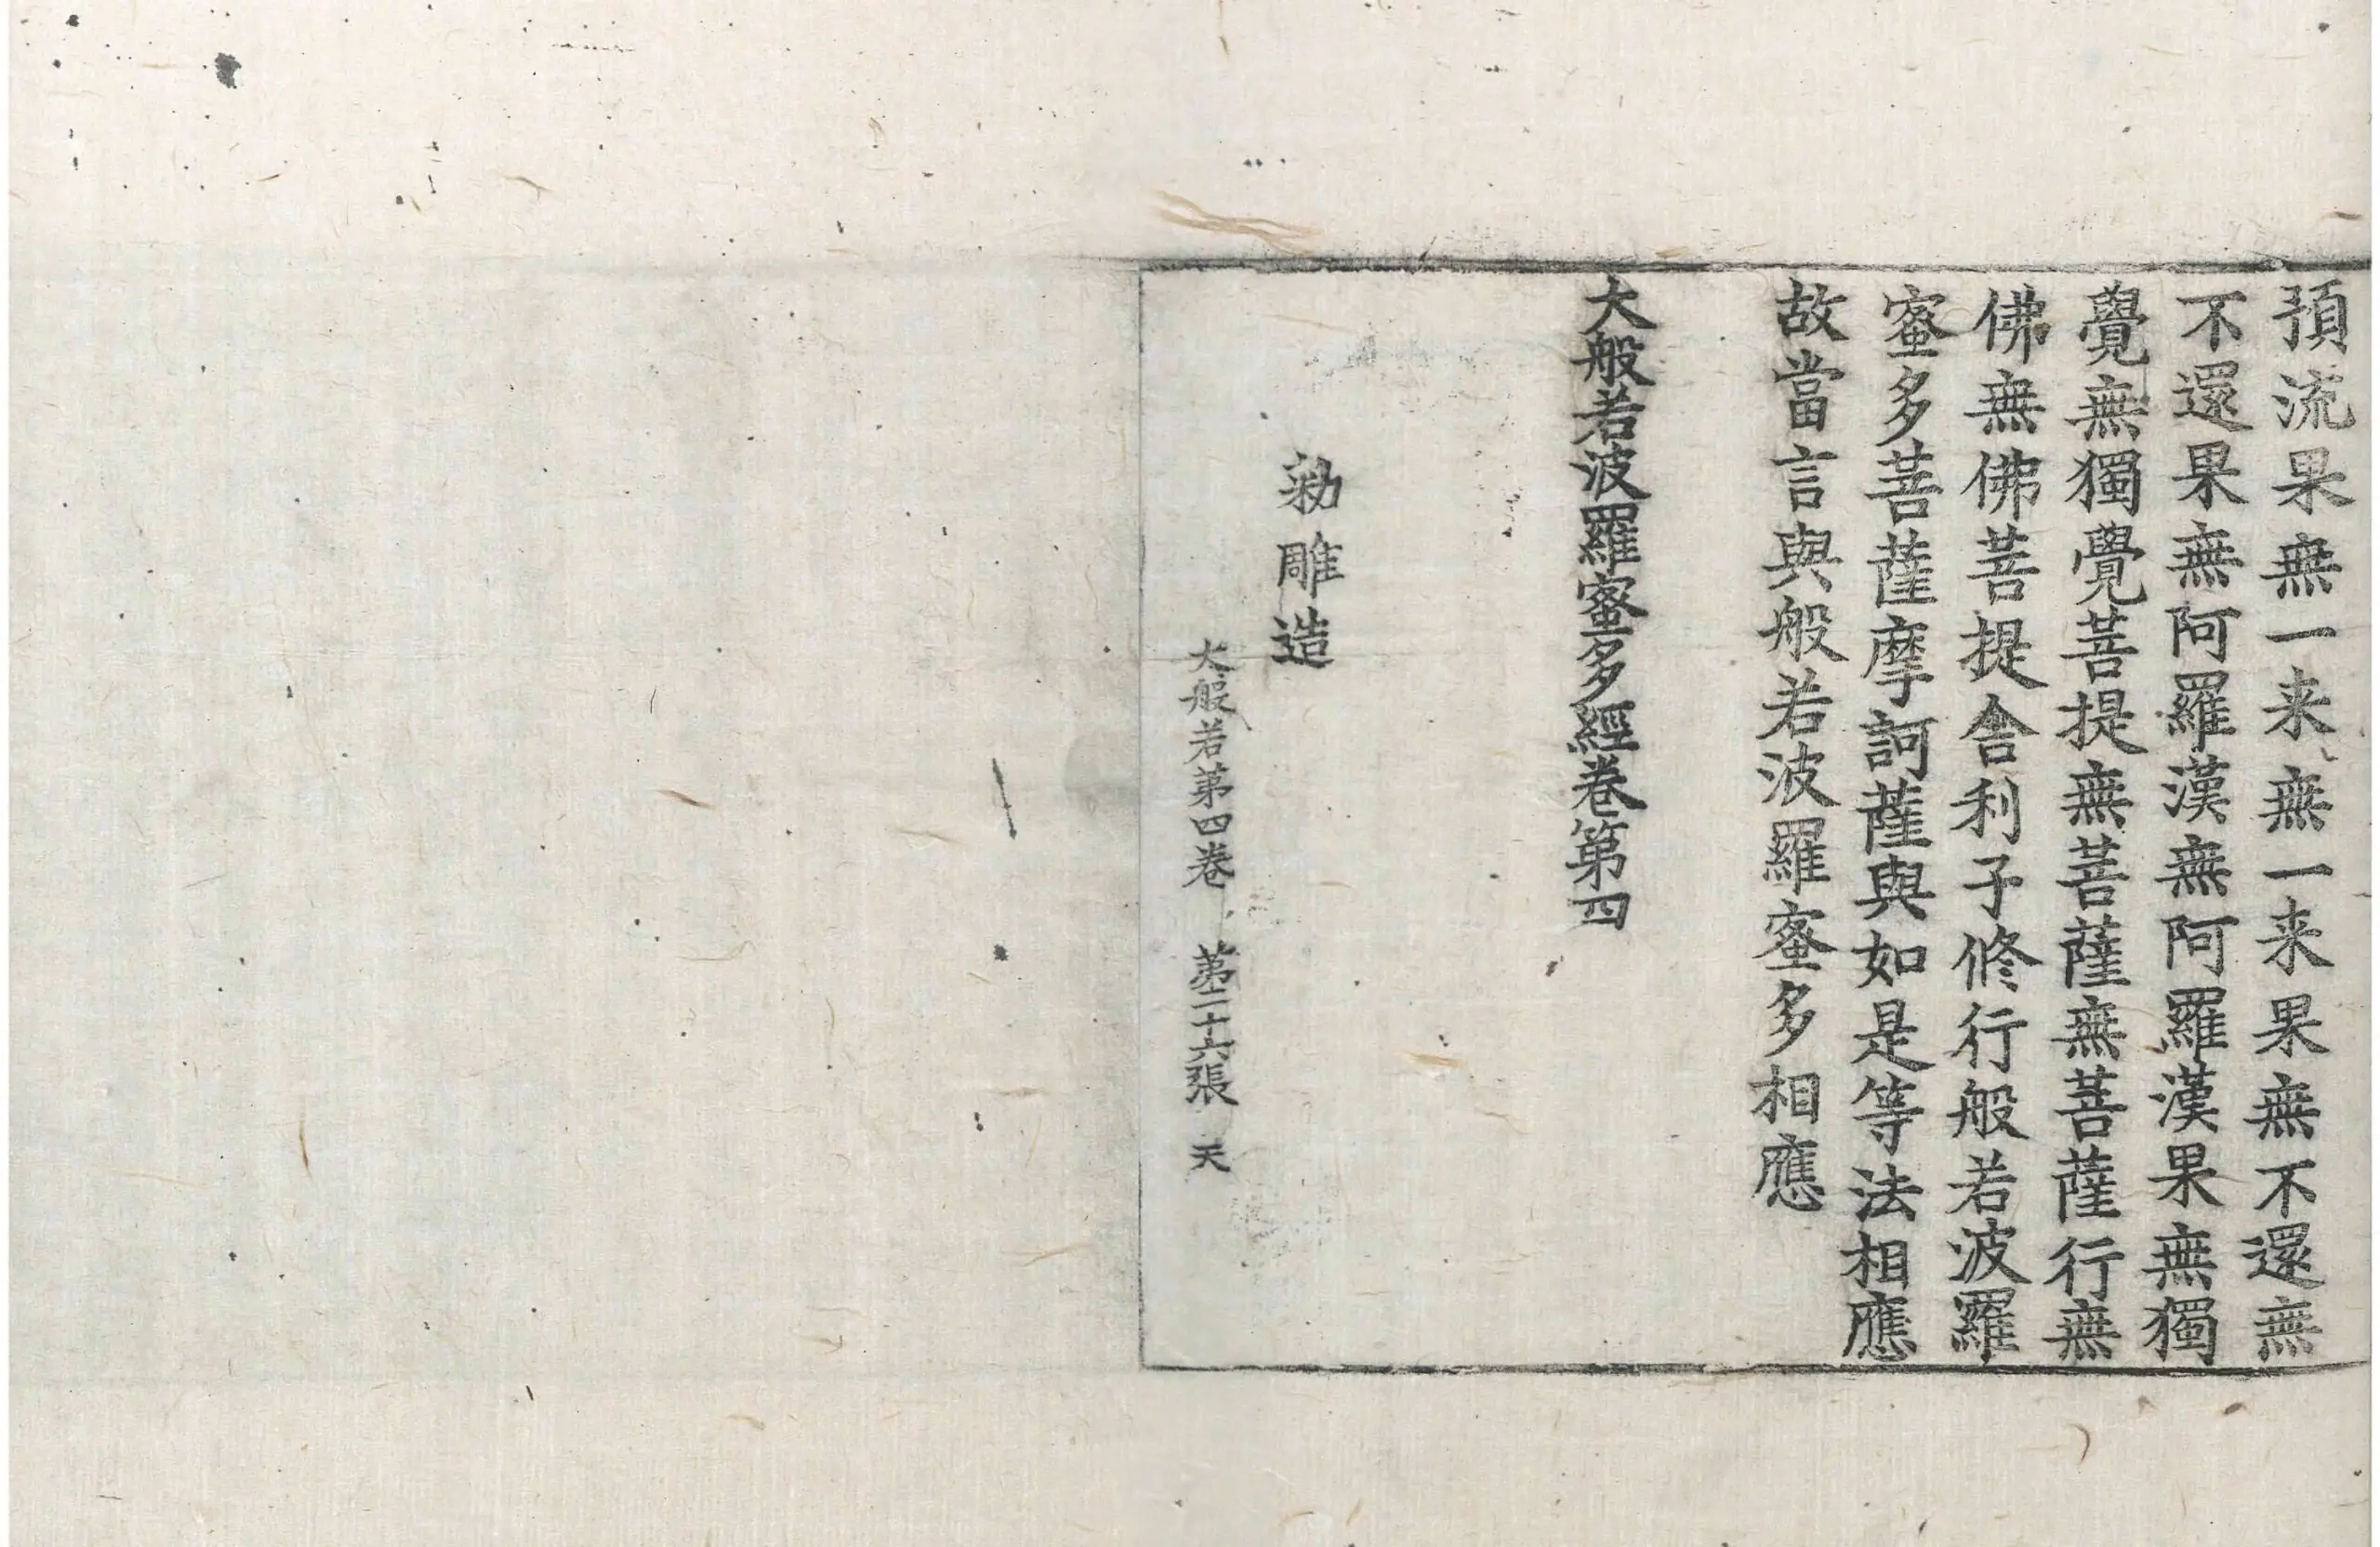 預流果無一来無一来果無不還無
不還果無阿羅漢無阿羅漢果無獨
覺無獨覺菩提無菩薩無菩薩行無
佛無佛菩提舍利子修行般若波羅
蜜多菩薩摩訶薩與如是等法相應
故當言與般若波羅蜜多相應
大般若波羅蜜多經卷第四
勑雕造
大般若第四卷 第二十六張 天